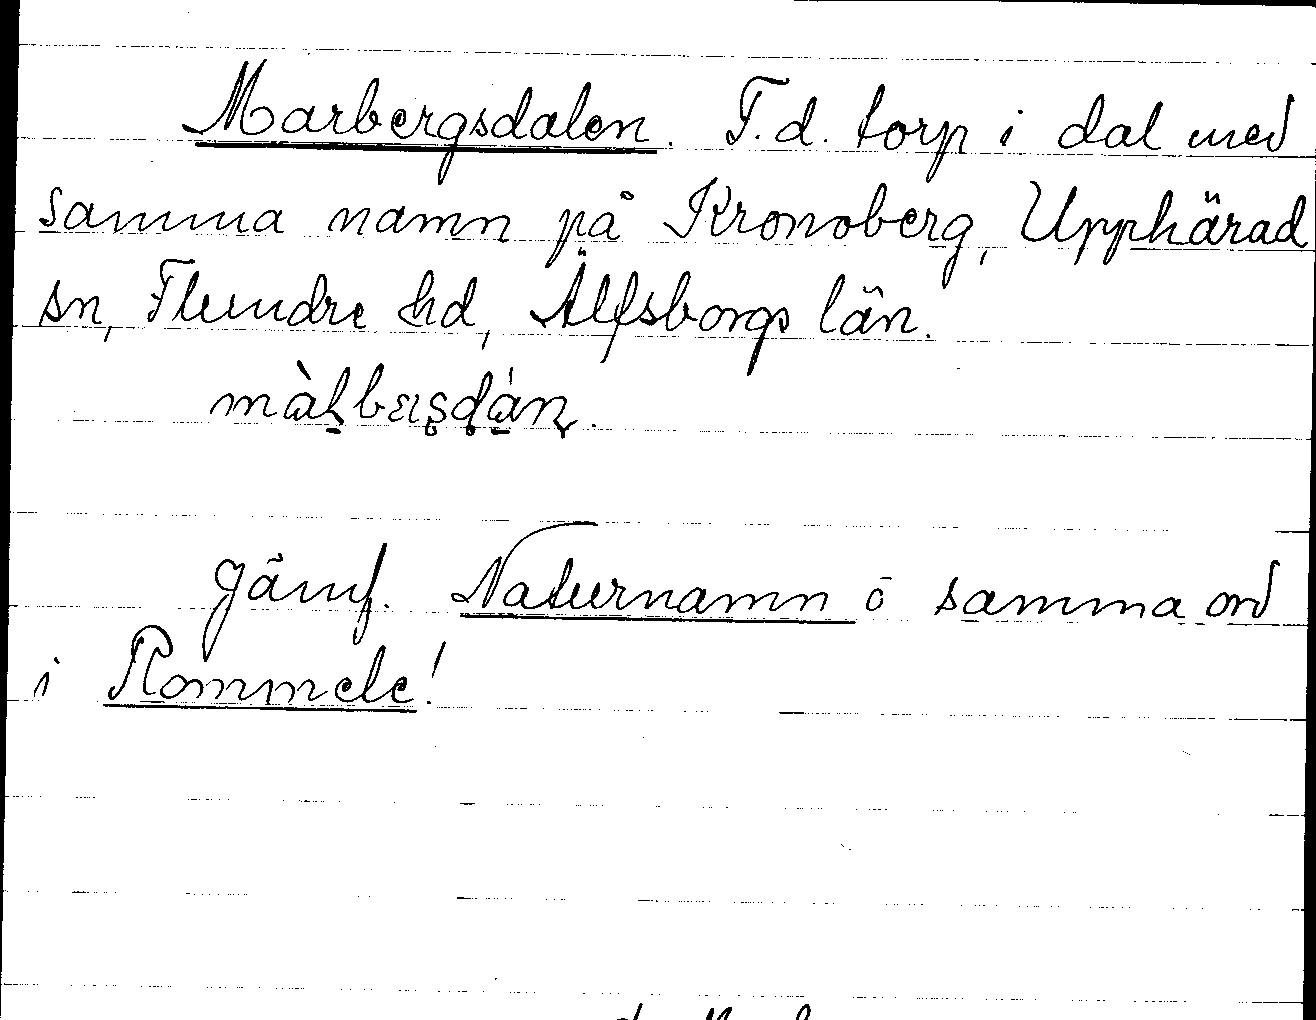 Marbergsdalen. F.d. torp i dal med
samma namn på Kronoberg, Upphärad
sn, Flundre hd, Älfsborgs län.
Jämf. Naturnamn o samma ord
i Rommele!